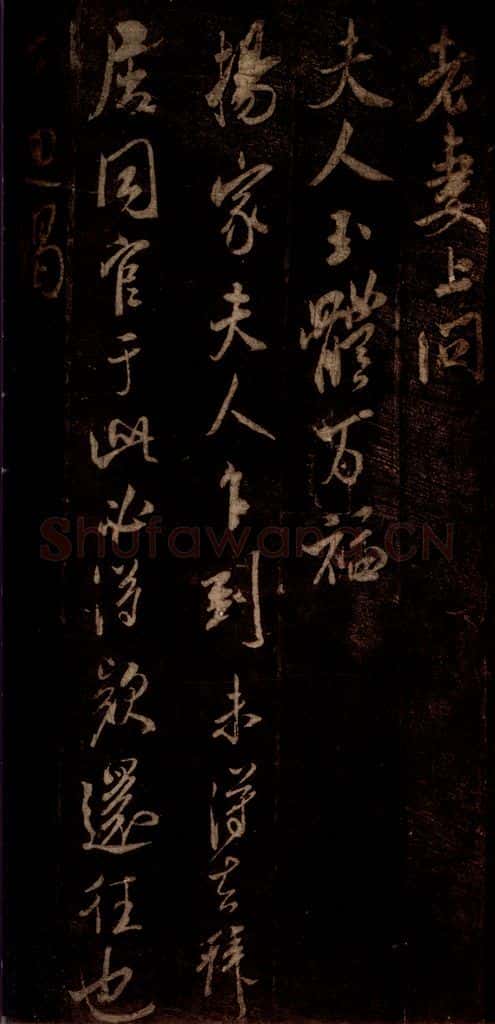 老妻上問
夫人玉體万福
揚家夫人乍到未得去拜
居同官于此必得款還往也
Shufawang.CN